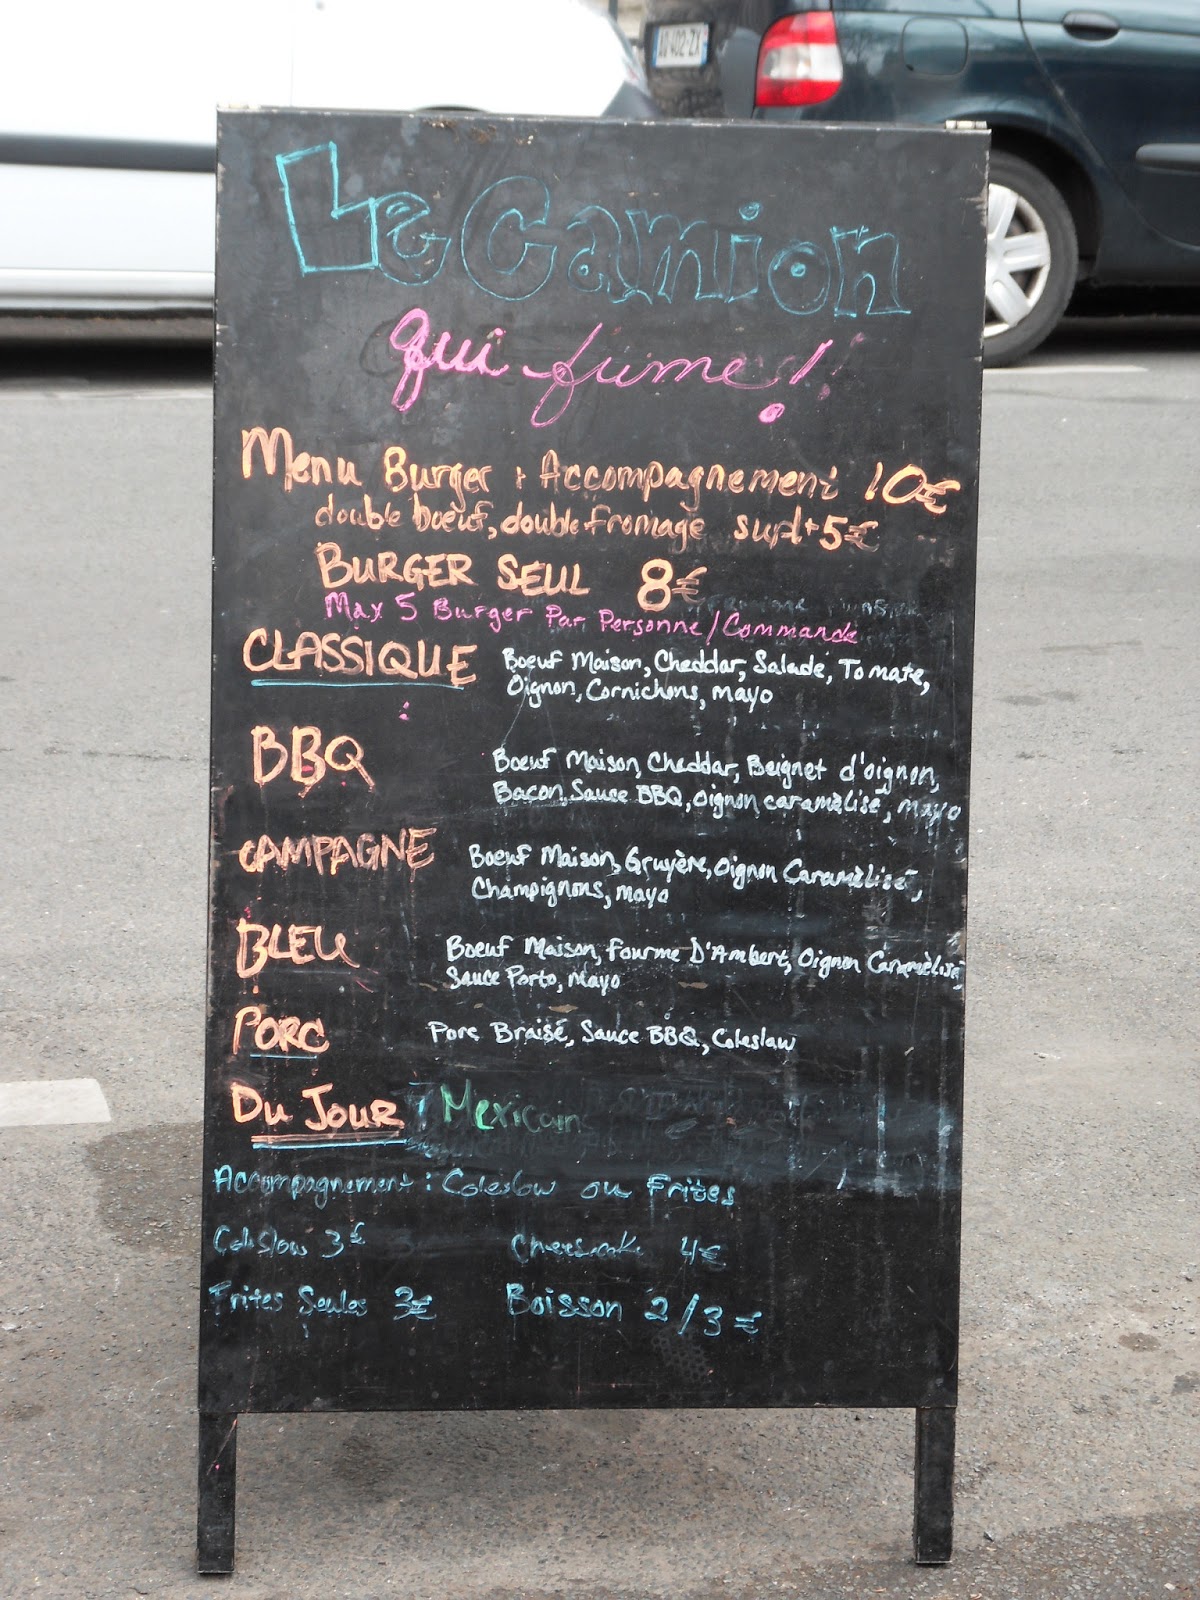 AD-402-ZX
Le Camion
qui fume!
Menu Burger + Accompagnement 10€
double bœuf, double fromage supl+5€
BURGER SEUL 8€
Max 5 Burger Par Personne/Commande
CLASSIQUE Boeuf Maison, Cheddar, Salade, Tomate,
Oignon, Cornichons, mayo
BBQ Boeuf Maison, Cheddar, Beignet d'oignon,
Bacon, Sauce BBQ, oignon caramèlisé, mayo
CAMPAGNE Boeuf Maison, Gruyère, Oignon Caramèlisé,
Champignons, mayo
BLEU Boeuf Maison, Fourme D'Ambert, Oignon Caramèlisé,
Sauce Porto, mayo
PORC Porc Braisé, Sauce BBQ, Coleslaw
Du Jour Mexicain
Accompagnement: Coleslow ou Frites
Coleslow 3€ Cheesecake 4€
Frites Seules 3€ Boisson 2/3€